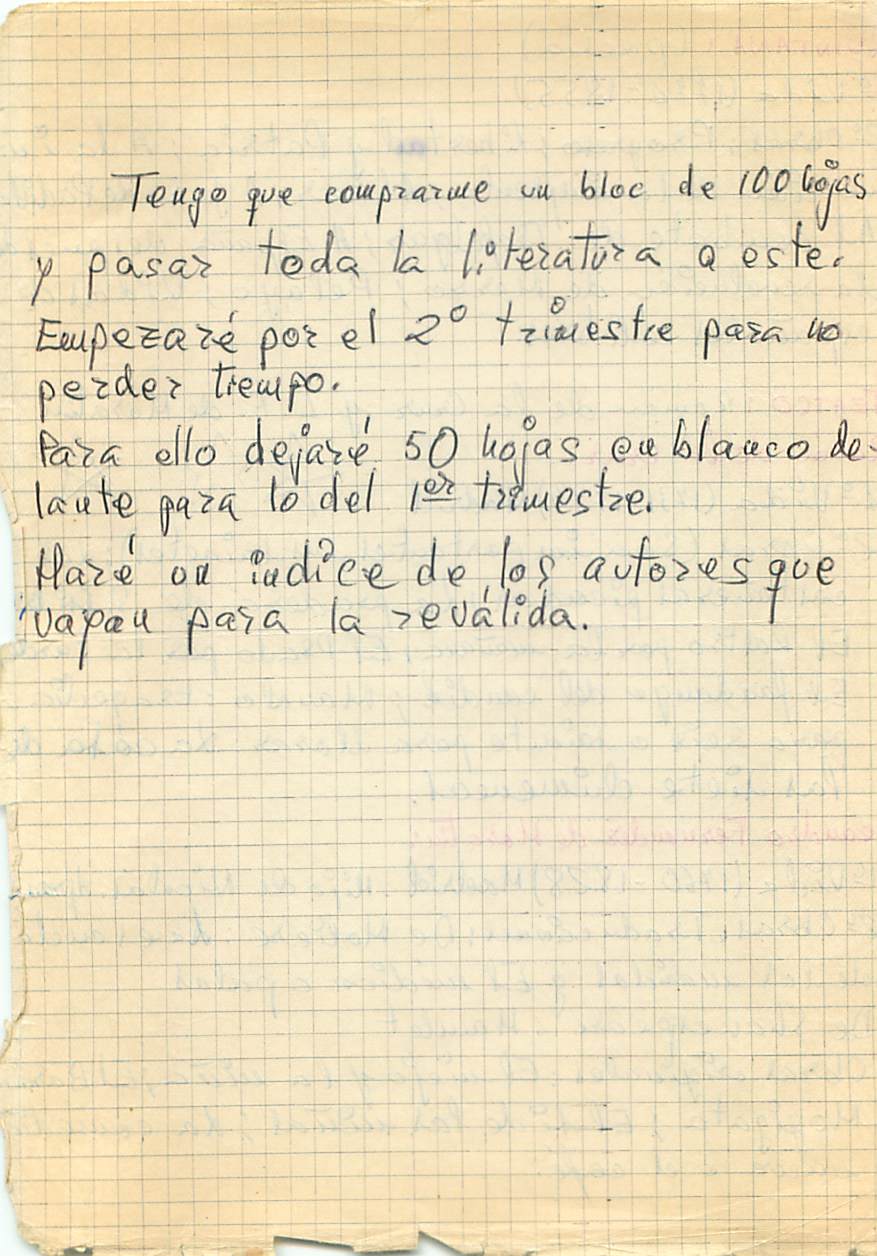 Tengo que comprarme un bloc de 100 hojas
y pasar toda la literatura a este.
Empezaré por el 2º trimestre para no
perder tiempo.
Para ello dejaré 50 hojas en blanco de-
lante para lo del 1er trimestre.
Haré un índice de los autores que
vayan para la reválida.